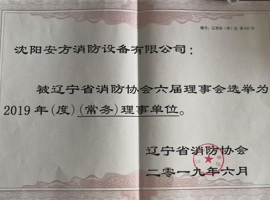 沈阳安方消防设备有限公司：
被辽宁省消防协会六届理事会选举为
2019年(度)(常务)理事单位。
辽宁省消防协会
二〇一九年六月